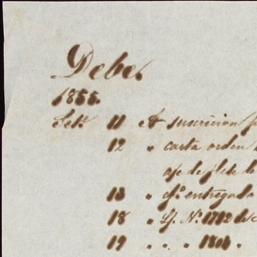 Debe.
1855.
Set. 11 A suscricion
12 " carta orden
13 " entregado
18 " L. N.º 1782
19 " " " 1801 "